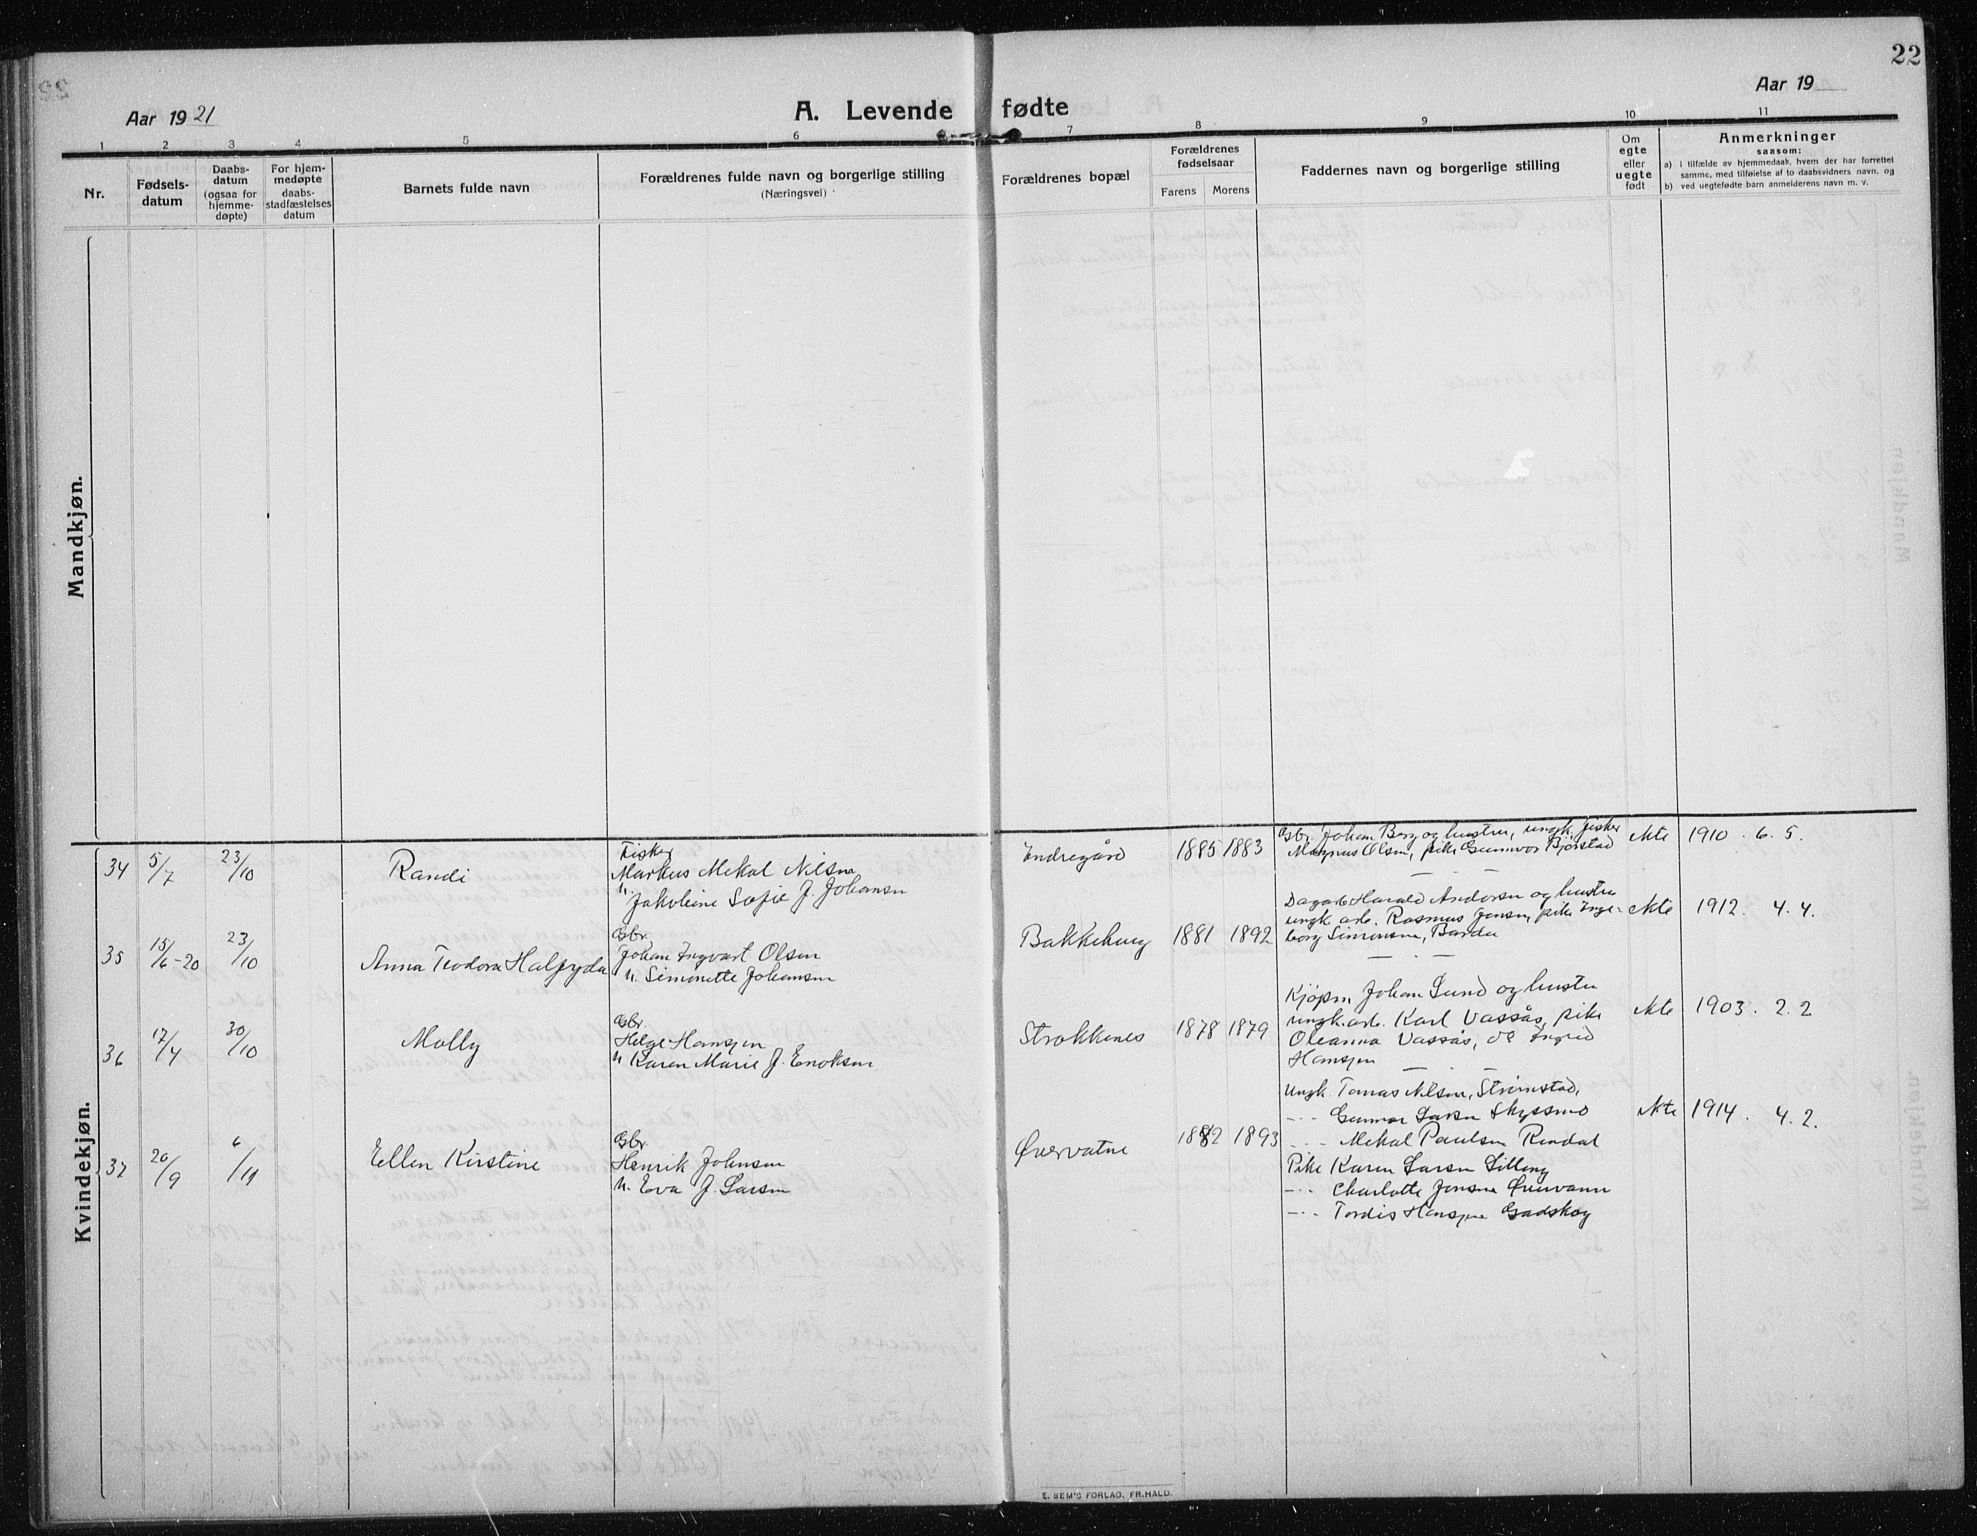 22
Aar 1921
A. Levende fødte
Aar 19
1 2 3 4 5 6 7 8 9 10 11
Nr.
Fødsels-
datum
Daabs-
datum
(ogsaa for
hjemme-
døpte)
For hjem-
medøpte
daabs-
stadfæstelses
datum
Barnets fulde navn
Forældrenes fulde navn og borgerlige stilling
(Næringsvei)
Forældrenes bopæl
Forældrenes
fødselsaar
Farens Morens
Faddernes navn og borgerlige stilling
Om
egte
eller
uegte
født
Anmerkninger
saasom:
a) i tilfælde av hjemmedaab, hvem der har forrettet
samme, med tilføielse af to daabsvidners navn, og
b) ved uegtefødte barn anmelderens navn m. v.
Mandkjøn.
Kvindekjøn.
34 5/7 23/10 Randi
Fisker
Markus Mekal Nilsen
Jakobine Sofie J. Johansen
Indregård 1885 1883
Gbr. Johan Berg og hustru, ungk. fisker
Magnus Olsen, pike Gunnvor Bjørstad
ekte 1910. 6. 5.
35 15/6-20 23/10 Anna Teodora Halfryda
Gbr.
Johan Ingvart Olsen
H. Simonette Johansen
Bakkehaug 1881 1892
Dagarb. Harald Andersen og hustru
ungk. arb. Rasmus Jensen, pike Inge-
borg Simonsen, Bardu
ekte 1912. 4. 4.
36 17/4 30/10 Molly
Gbr.
Helge Hansen
H. Karen Marie J. Enoksen
Strokkenes 1878 1879
Kjøpm. Johan Lund og hustru
ungk. arb. Karl Vassås, pike
Oleanna Vassås, do Ingrid
Hansen
ekte 1903. 2. 2
37 20/9 6/11 Ellen Kirstine
Gbr.
Henrik Johnsen
H. Eva J. Larsen
Øvervatne 1882 1893
Ungk. Tomas Nilsen, Strømstad,
-..- Gunnar Larsen Skyssmo
-..- Mekal Paulsen Rendal
Pike Karen Larsen
-..- Charlotte Jensen Øvervann
-..- Tordis Hansen Gadskog
ekte 1914. 4. 2.
E. SEM'S FORLAG, FR.HALD.